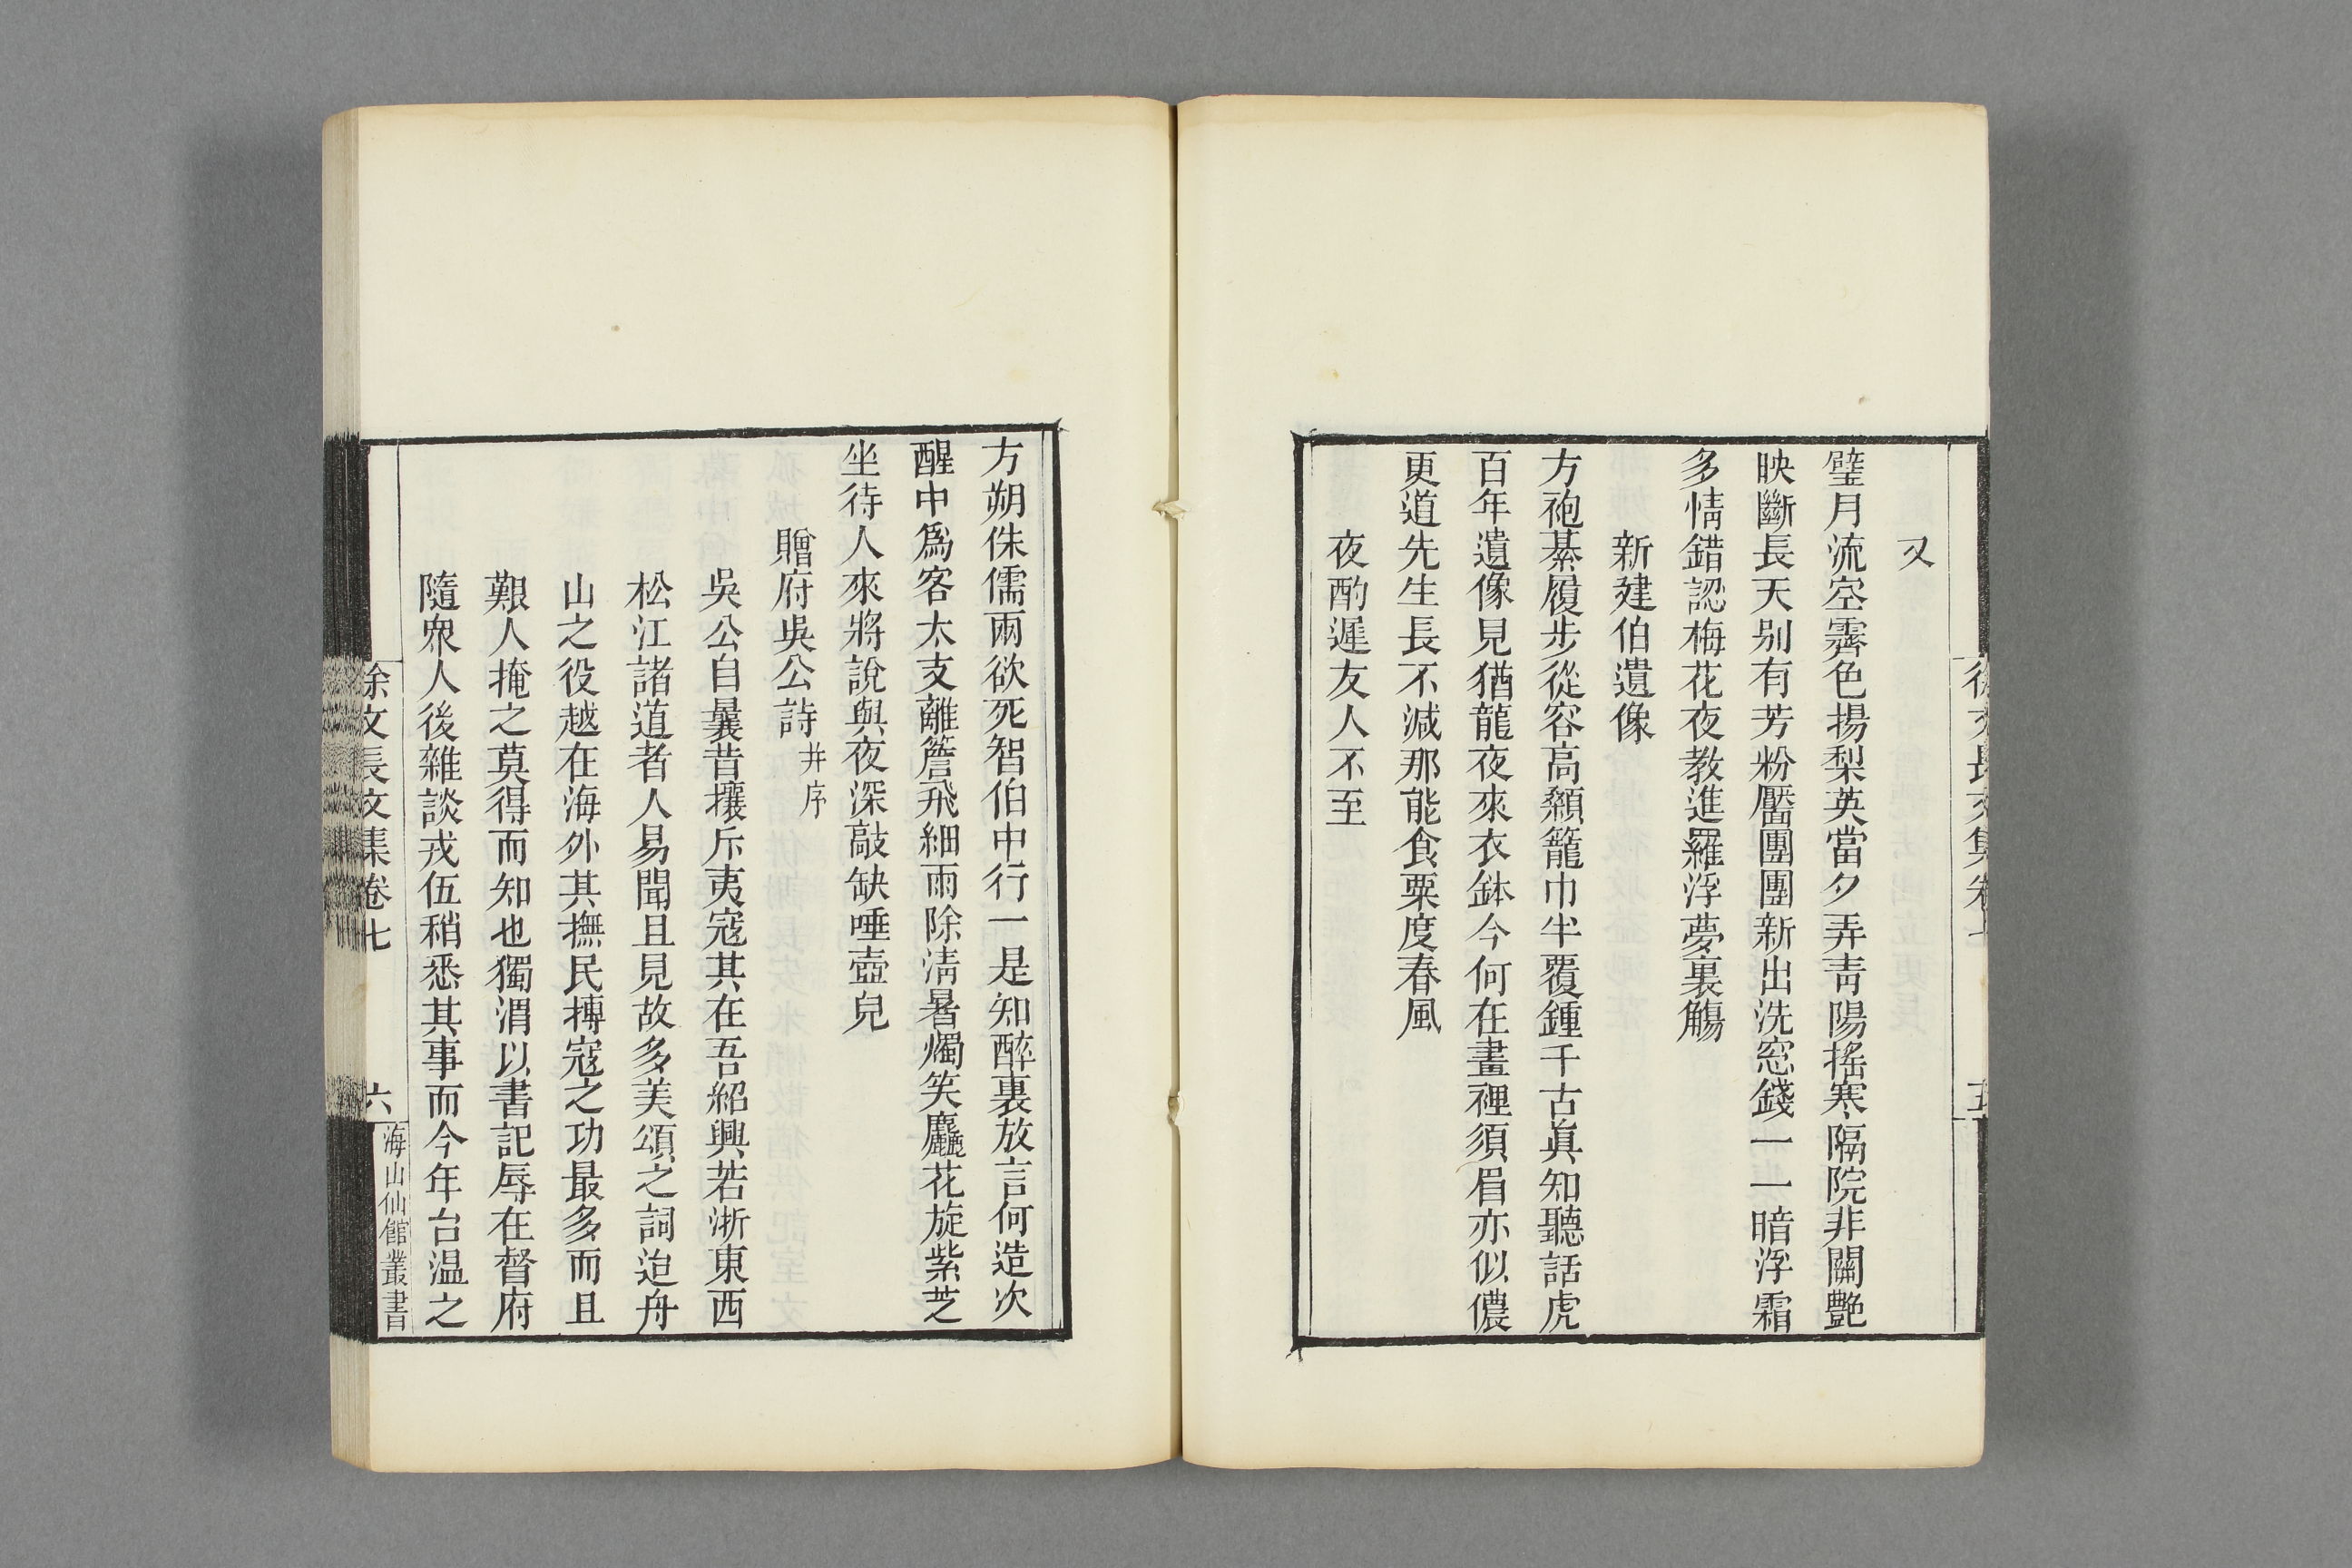 又
璧月流空霽色揚梨英當夕弄青陽搖寒隔院非關艷
映斷長天別有芳粉靨團團新出洗窓錢一一暗浮霜
多情錯認梅花夜教進羅浮夢裏觴
新建伯遺像
方袍綦履步從容高顙籠巾半覆鍾千古眞知聽話虎
百年遺像見猶龍夜來衣鉢今何在畫裡須眉亦似儂
更道先生長不減那能食粟度春風
夜酌遲友人不至
方朔侏儒兩欲死智伯中行一是知醉裏放言何造次
醒中爲客太支離簷飛細雨除淸暑燭笑麤花旋紫芝
坐待人來將說與夜深敲缺唾壺兒
贈府吳公詩 并序
吳公自曩昔攘斥夷寇其在吾紹興若浙東西
松江諸道者人易聞且見故多美頌之詞迨舟
山之役越在海外其撫民摶寇之功最多而且
艱人掩之莫得而知也獨渭以書記辱在督府
隨衆人後雜談戎伍稍悉其事而今年台温之
徐文長文集卷七
六
海山仙館叢書